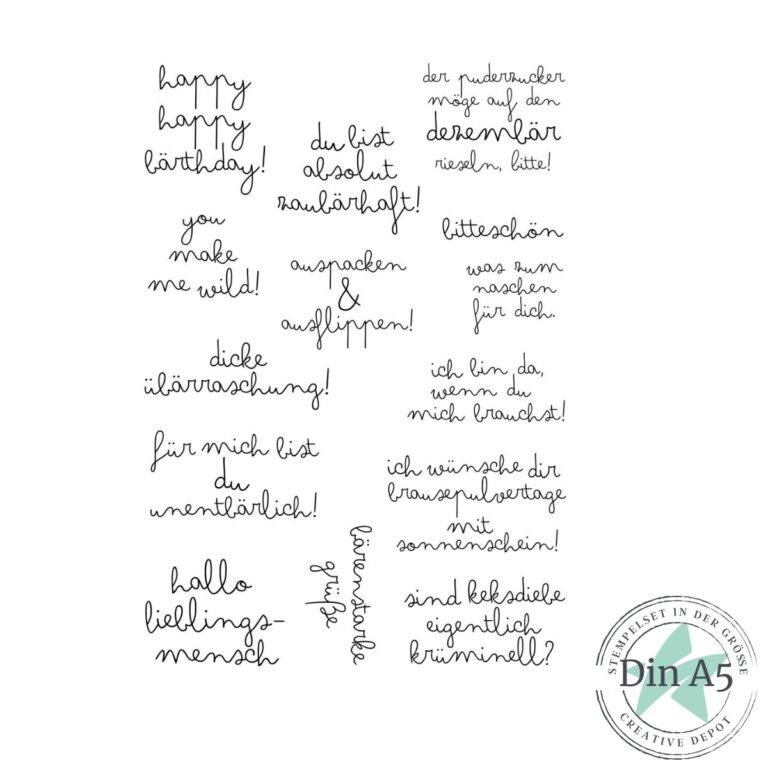 happy
happy
bärthday!
der puderzucker
möge auf den
dezembär
rieseln, bitte!
du bist
absolut
zaubärhaft!
you
make
me wild!
bitteschön
was zum
naschen
für dich.
auspacken
&
ausflippen!
dicke
übärraschung!
ich bin da,
wenn du
mich brauchst!
für mich bist
du
unentbärlich!
ich wünsche dir
brausepulvertage
mit
sonnenschein!
hallo
lieblings-
mensch
bärenstarke
grüße
sind keksdiebe
eigentlich
krüminell?
STEMPELSET IN DER GRÖSSE
Din A5
CREATIVE DEPOT